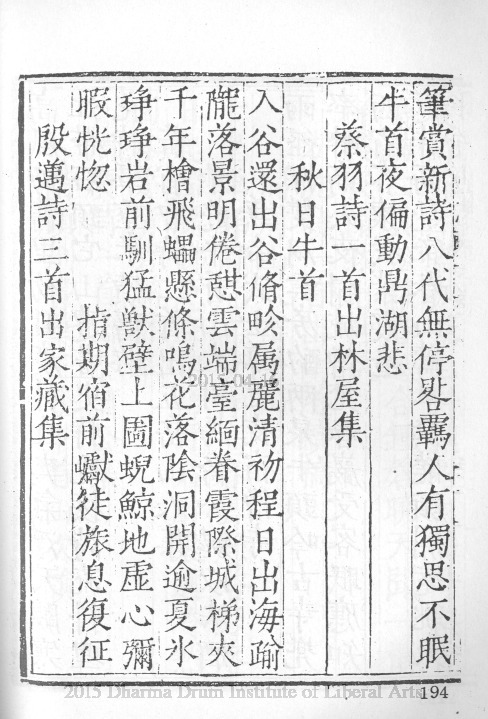 筆賞新詩八代無停晷羈人有獨思不眠
牛首夜偏動鼎湖悲
蔡羽詩一首出林屋集
秋日牛首
入谷還出谷脩畛属麗清礽程日出海踰
隴落景明倦憇雲端臺緬眷霞際城梯夾
千年檜飛蠝懸條鳴花落陰洞開逾夏氷
琤琤岩前馴猛獸壁上圖蜺鯨地虛心彌
暇恍惚 指期宿前巘徒旅息復征
殷邁詩三首出家藏集
2015 Dharma Drum Institute of Liberal Arts
194